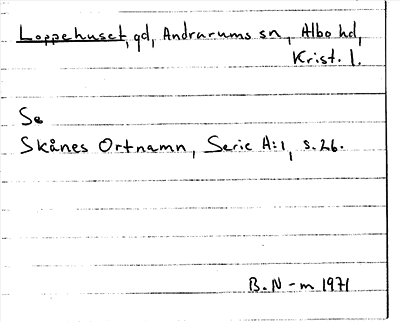 Loppehuset, gd, Andrarums sn, Albo hd,
Krist. l.
Se
Skånes Ortnamn, Serie A:1, s. 26.
B.N-m 1971